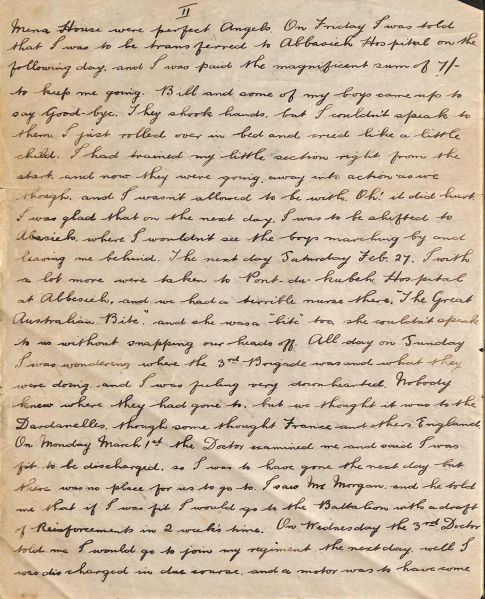 II
Mena House were perfect Angels. On Friday I was told
that I was to be transferred to Abbasieh Hospital on the
following day, and I was paid the magnificent sum of 7/-
to keep me going. Bill and some of my boys came up to
say Good-bye. They shook hands, but I couldn't speak to
them. I just rolled over in bed and cried like a little
child. I had trained my little section right from the
start and now they were going away into action as we
though, and I wasn't allowed to be with. Oh! it did hurt.
I was glad that on the next day, I was to be shifted to
Abasieh, where I wouldn't see the boys marching by and
leaving me behind. The next day Saturday Feb. 27, I with
a lot more were taken to Pont-du-kubeh Hospital
at Abbesieh, and we had a terrible nurse there, "The Great
Australian Bite", and she was a "bite" too, she couldn't speak
to us without snapping our heads off. All day on Sunday
I was wondering where the 3rd Brigade was and what they
were doing, and I was feeling very downhearted. Nobody
knew where they had gone to, but we thought it was to the
Dardanelles, though some thought France and others England
On Monday March 1st the Doctor examined me and said I was
fit to be discharged, so I was to have gone the next day but
there was no place for us to go to. I saw Mr Morgan, and he told
me that if I was fit I would go to the Battalion with a draft
of Reinforcements in 2 weeks time. On Wednesday the 3rd Doctor
told me I would go to join my regiment the next day, well I
was discharged in due course, and a motor was to have come